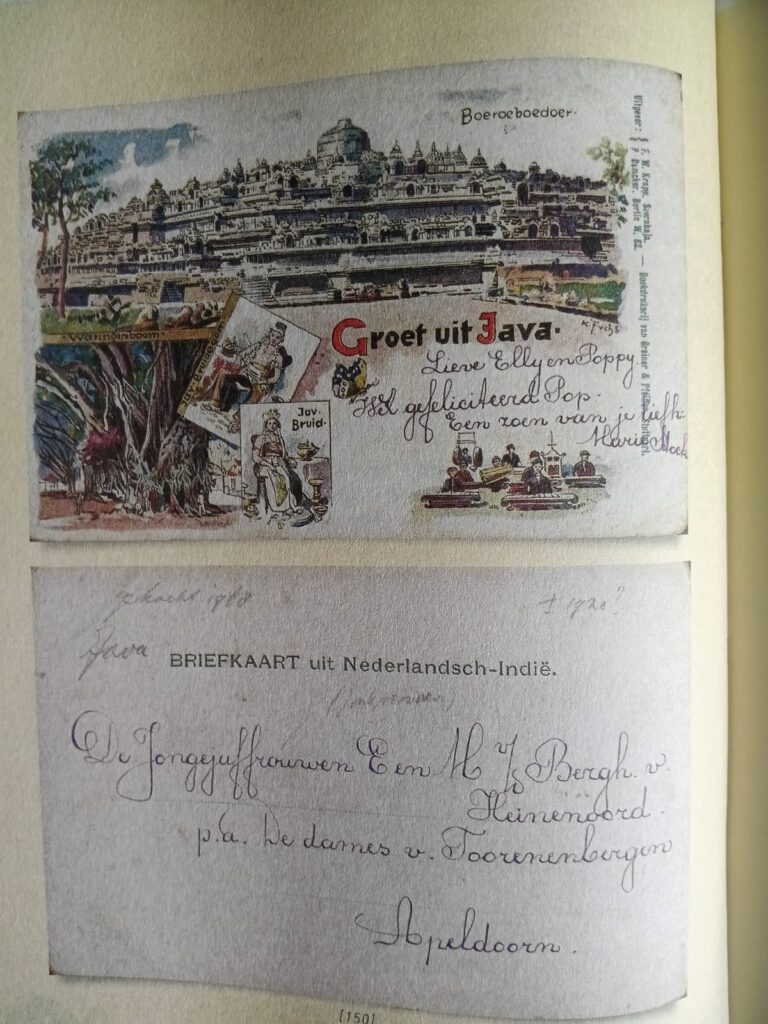 Boeroeboedoer.
Uitgever: { F. W. Krapp, Soerabaja.
{ P. Dencker, Berlin W. 62. — Boekdrukkerij van Greiner &
K. Frichs
Waringinboom
Groet uit Java.
Lieve Elly en Poppy.
gefeliciteerd Pop.
Een zoen van je liefh.
Marie
Jav.
Bruid.
gekocht 1968
± 1920?
Java
BRIEFKAART uit Nederlandsch-Indië.
De Jongejuffrouwen E en M v/d Bergh. v.
Heinenoord.
p.a. De dames v. Toorenenbergen
Apeldoorn.
[150]